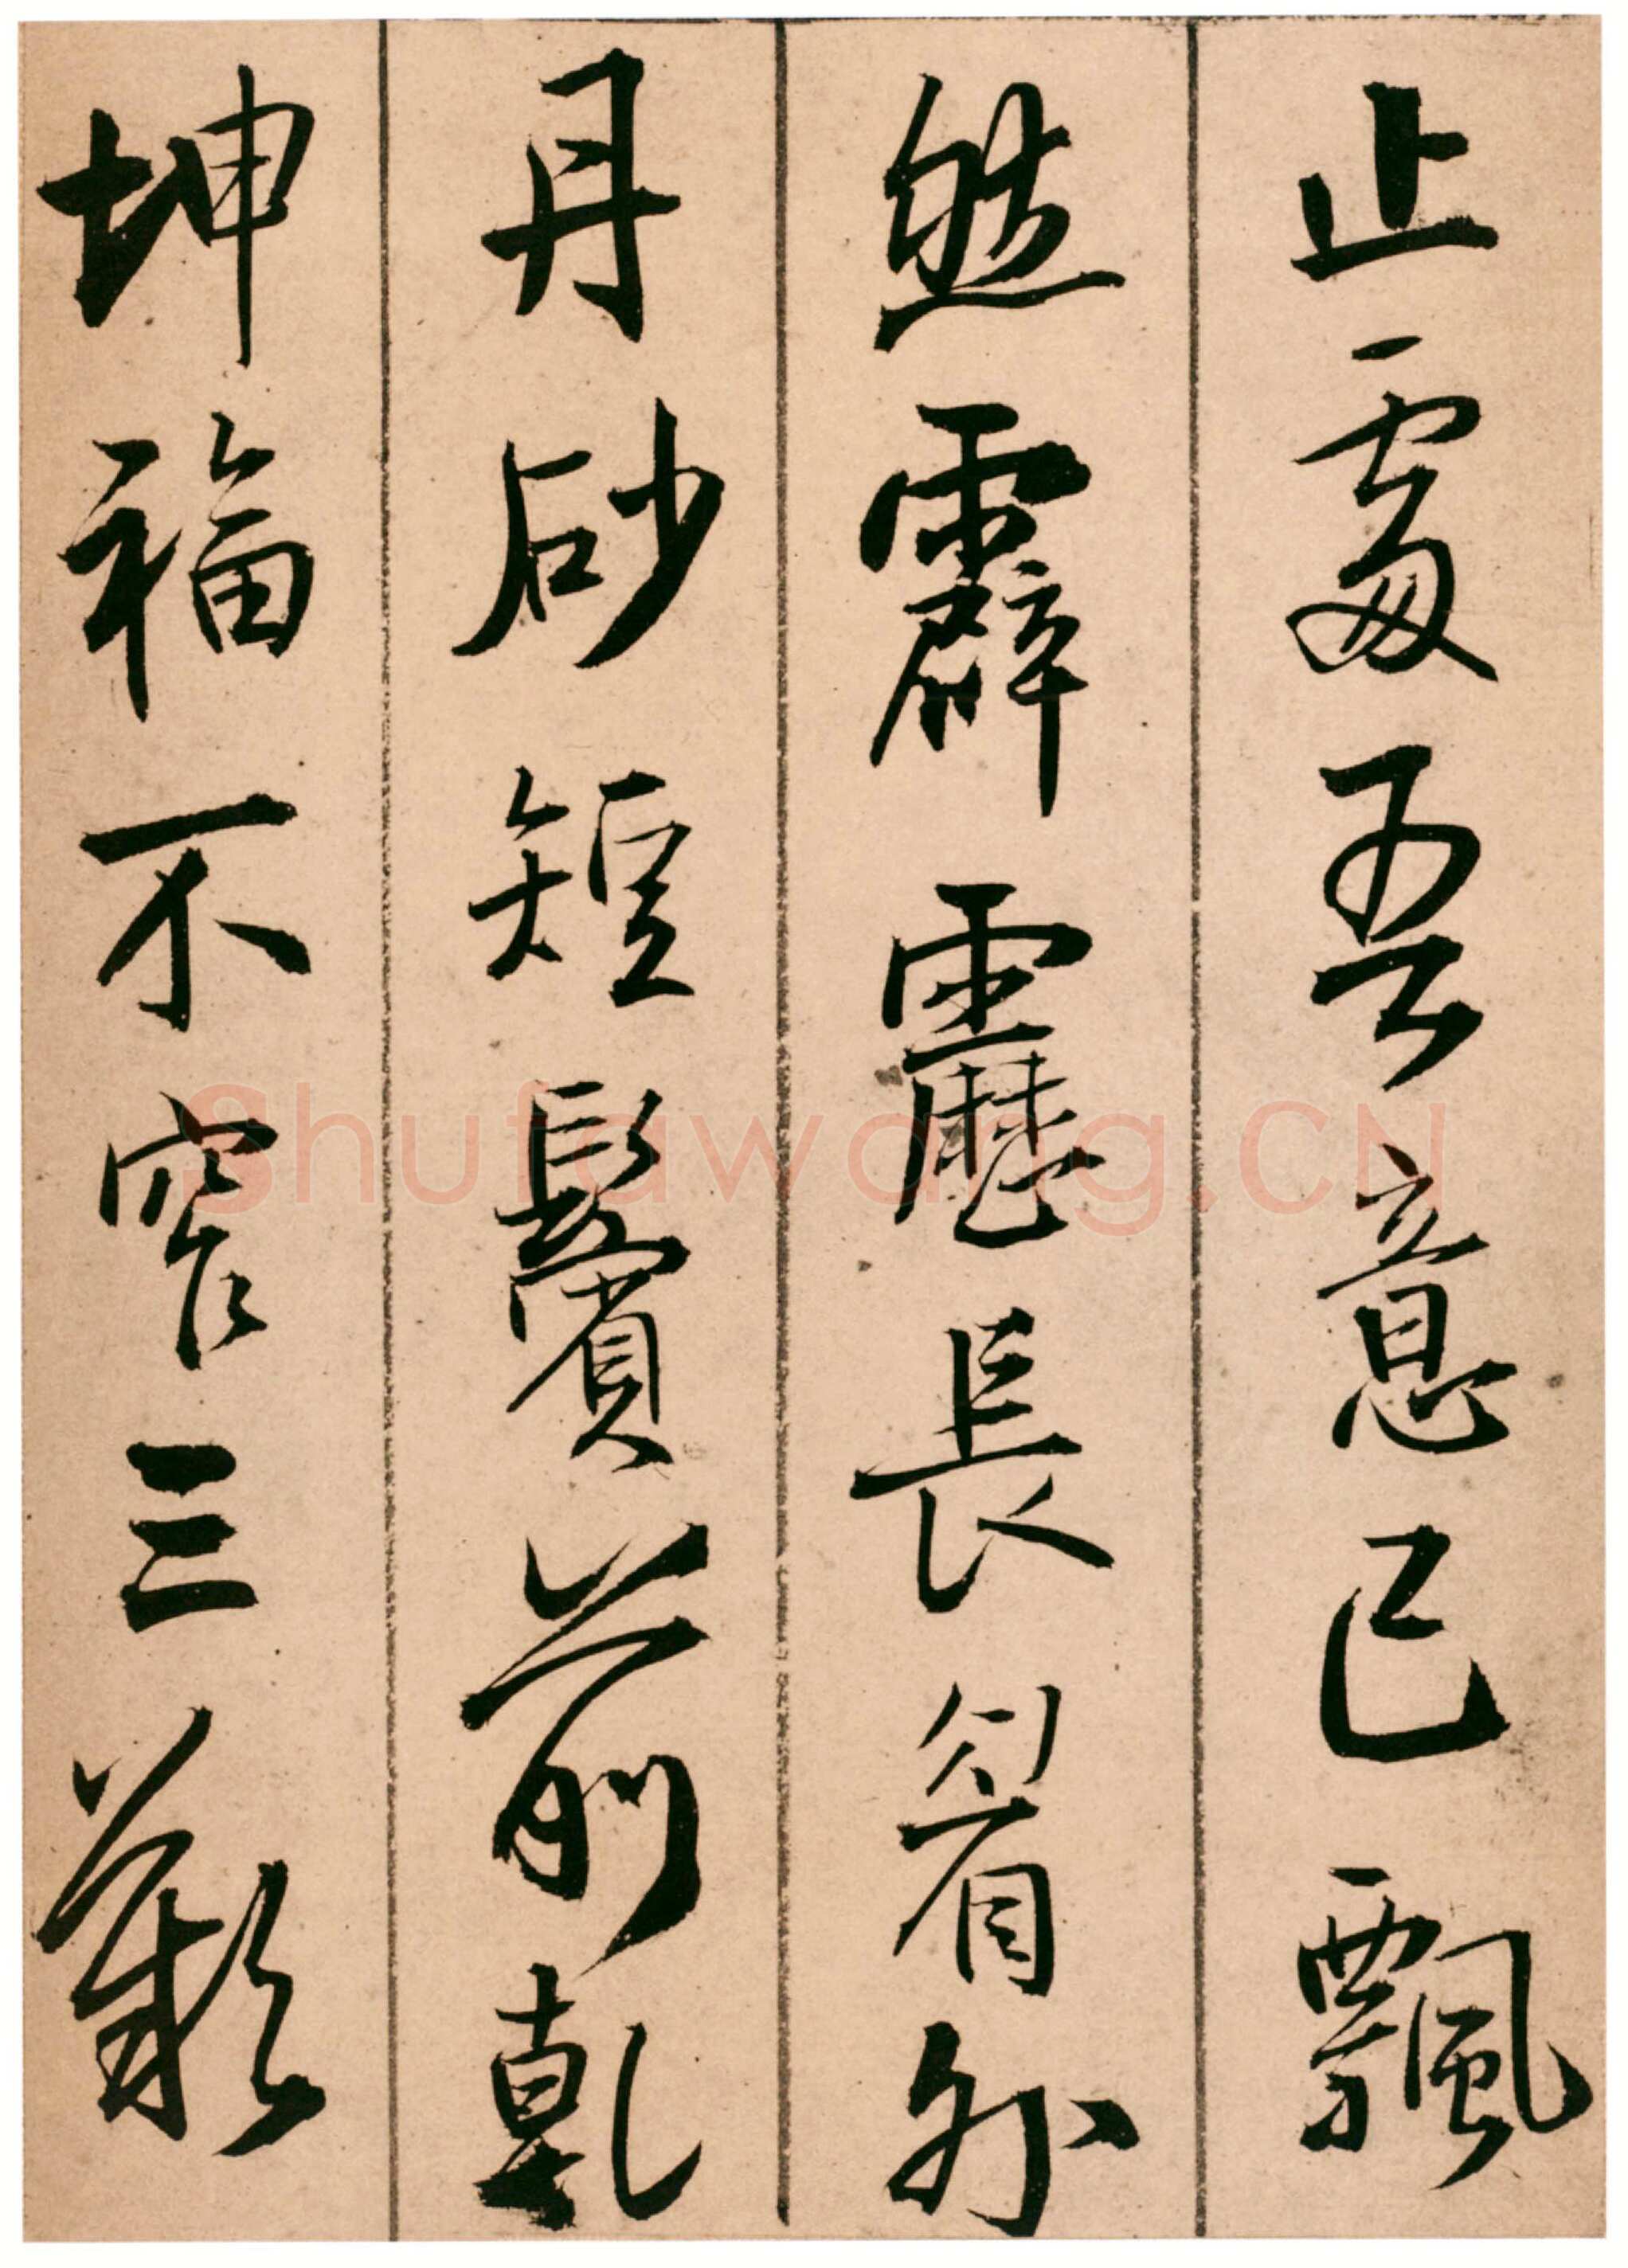 止處吾意已飄
然霹靂長外
丹砂短鬢前乾
坤福不窄三歎
Shufawang.CN